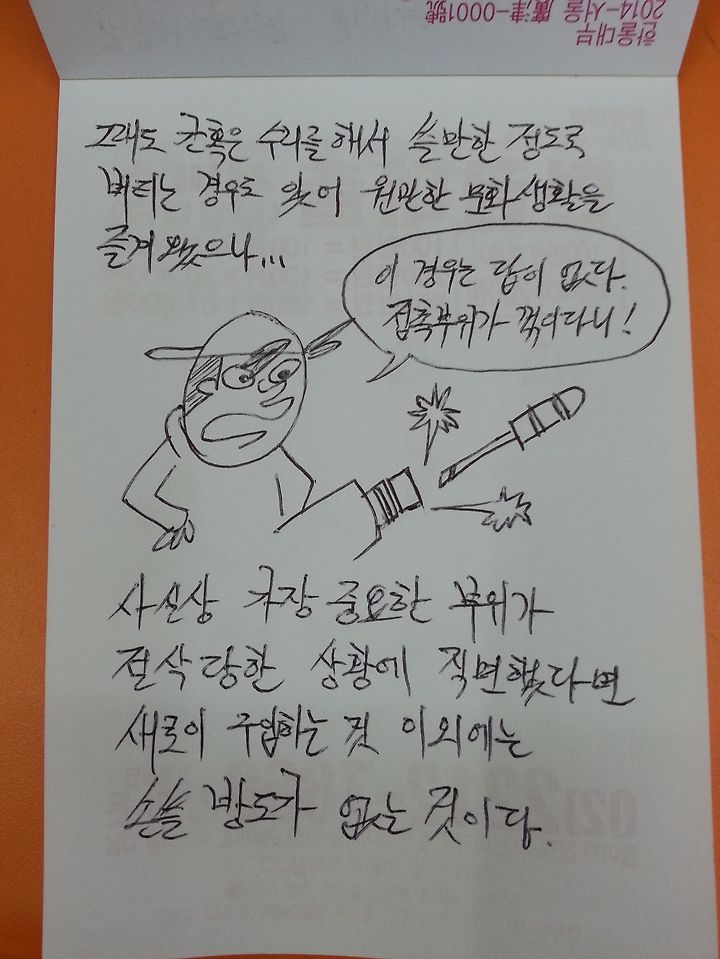 한울대부
2014-서울 廣津-0001號
그래도 간혹은 수리를 해서 쓸만한 정도로
버티는 경우도 있어 원만한 문화생활을
즐겨 왔으나...
이 경우는 답이 없다.
접촉부위가 꺾이다니!
사실상 가장 중요한 부위가
절삭당한 상황에 직면했다면
새로이 구입하는 것 이외에는
손쓸 방도가 없는 것이다.